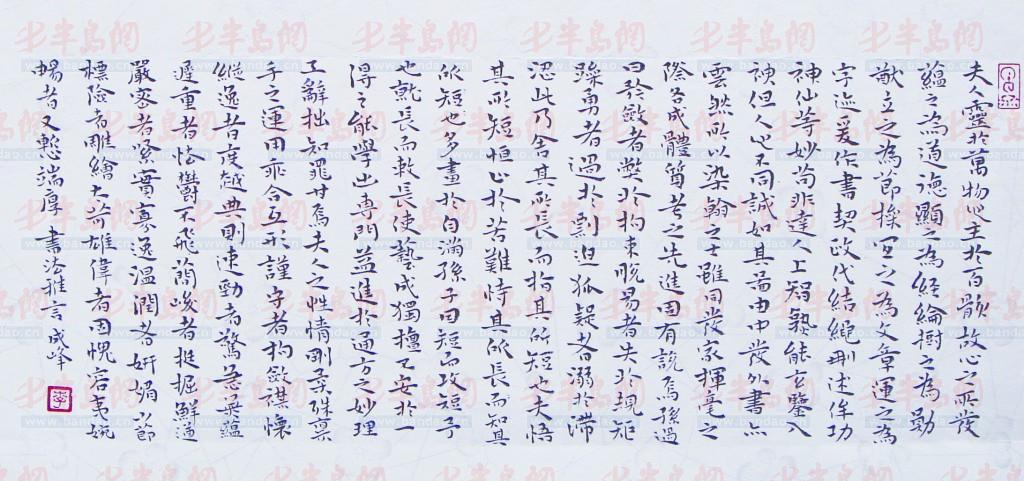 夫人靈於萬物心主於百骸故心之所發
蘊之為道德顯之為經綸樹之為勛
猷立之為節操宣之為文章運之為
字迹爰作書契政代結繩刪述侔功
神仙等妙苟非達人上智孰能玄鑒入
神但人心不同誠如其面由中發外書亦
雲然所以染翰之士雖同法家揮毫之
際各成體質考之先進固有說焉孫過
曰矜斂者弊於拘束脫易者失於規矩
躁勇者過於剽迫狐疑者溺於滯
澀此乃舍其所長而指其所短也夫悟
其所短恒止於苦難恃其所長而知其
所短也多畫於自滿孫子因短而攻短予
也就長而刺長使藝成獨擅不安於一
得之能學出專門益進於通方之妙理
工辭拙知罪甘焉夫人之性情剛柔殊稟
手之運用乖合互形謹守者拘斂襟懷
縱逸者度越典則速勁者驚急無蘊
遲重者怯鬱不飛簡峻者挺掘鮮遒
嚴密者緊實寡逸溫潤者妍媚少節
標險者雕繪太苛雄偉者固愧容夷婉
暢者又慚端厚 書法雅言 成峰
半島網
www.bandao.cn